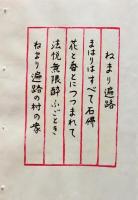 ねまり遍路
まはりはすべて石佛
花と春とにつつまれて
法悦無限酔ふごとき
ねまり遍路の村の家